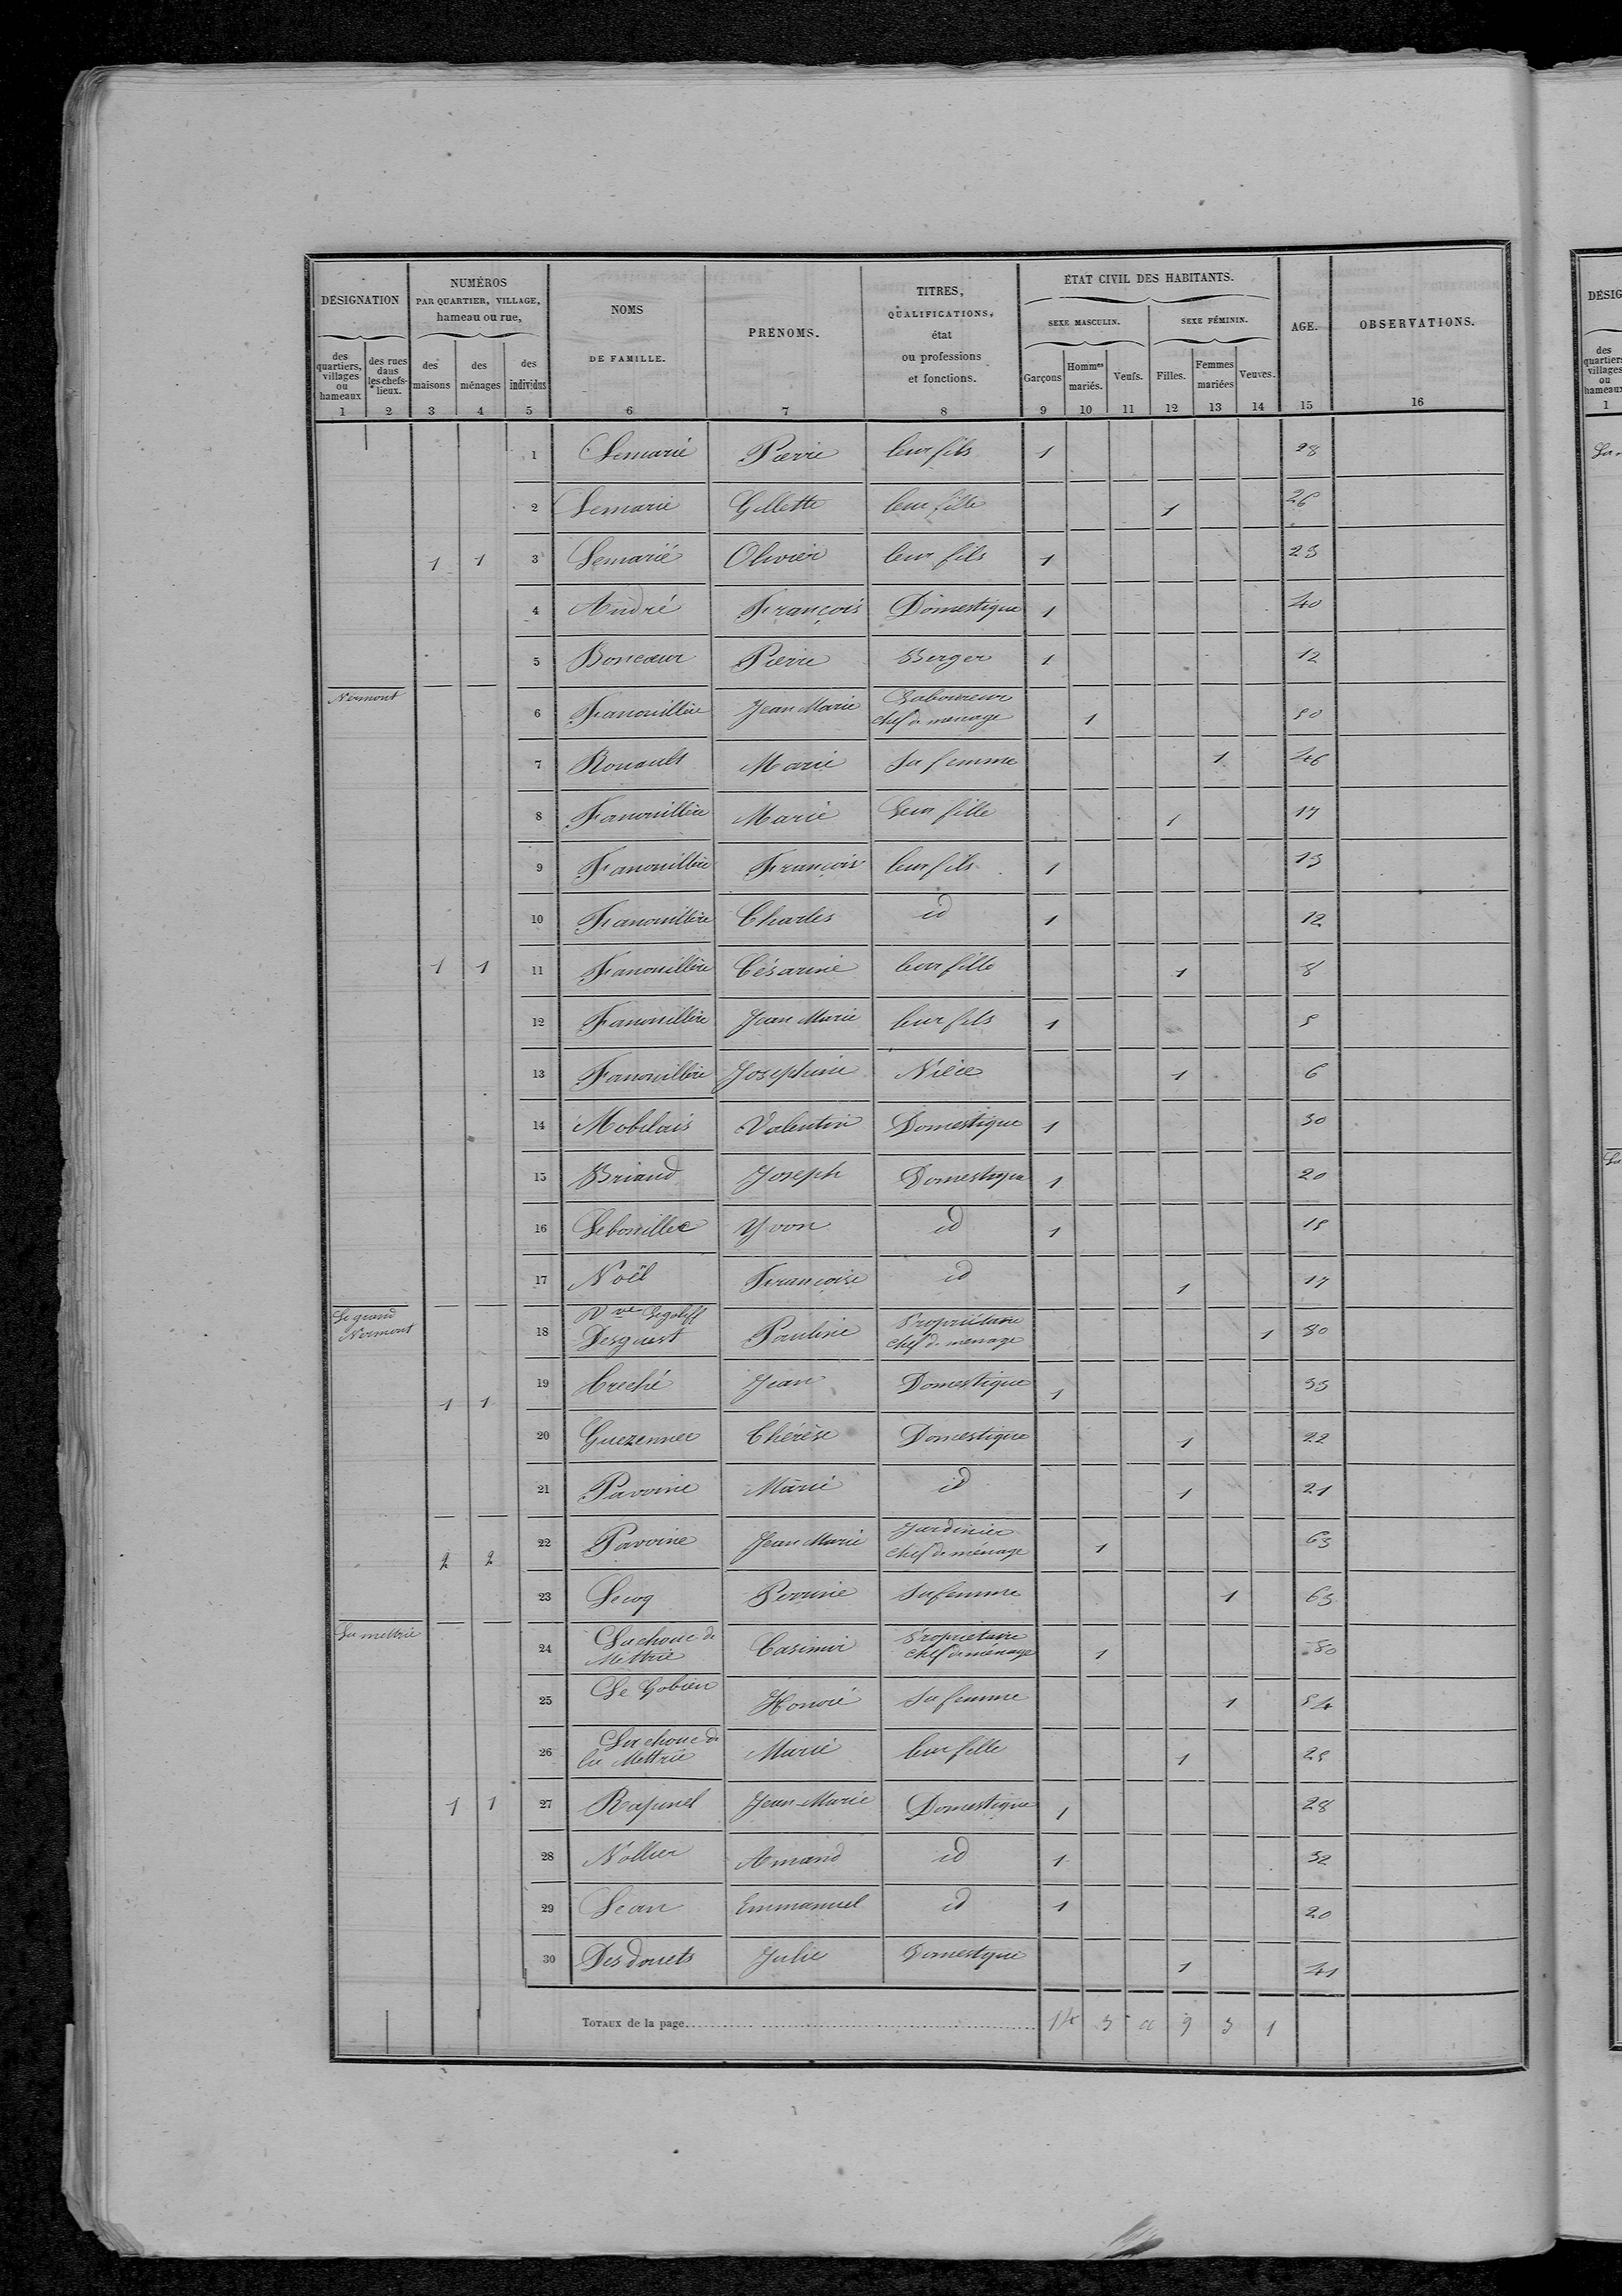 DÉSIGNATION
NUMÉROS
PAR QUARTIER, VILLAGE,
hameau ou rue,
NOMS
DE FAMILLE.
PRÉNOMS.
TITRES,
QUALIFICATIONS,
état
ou professions
et fonctions.
ÉTAT CIVIL DES HABITANTS.
SEXE MASCULIN.
SEXE FÉMININ.
AGE.
OBSERVATIONS.
des quartiers, villages ou hameaux
des rues dans les chefs-lieux.
des maisons
des ménages
des individus
Garçons
Hommes mariés.
Veufs.
Filles.
Femmes mariées
Veuves.
1 2 3 4 5 6 7 8 9 10 11 12 13 14 15 16
1 Lemarié Pierre leur fils 1 28
2 Lemarie Gillette leur fille 1 26
1 1 3 Lemarié Olivier leur fils 1 23
4 André François Domestique 1 40
5 Boncœur Pierre Berger 1 12
Nermont
6 Fanouillère Jean Marie Laboureur chef de menage 1 50
7 Rouault Marie Sa femme 1 46
8 Fanouillère Marie Leur fille 1 17
9 Fanouillère François leur fils 1 15
10 Fanouillère Charles id 1 12
1 1 11 Fanouillère Césarine leur fille 1 8
12 Fanouillère Jean Marie leur fils 1 5
13 Fanouillère Josephine Nièce 1 6
14 Mobilais Valentin Domestique 1 30
15 Briand Joseph Domestique 1 20
16 Lebouillec Yvon id 1 15
17 Noël Françoise id 1 17
Le grand
Nermont
18 Vve Legaliff
Desguest Pauline Propriétaire chef de menage 1 80
1 1 19 Creché Jean Domestique 1 35
20 Guezennec Thérèse Domestique 1 22
21 Pavoine Marie id 1 21
2 2 22 Pavoine Jean Marie Jardinier chef de ménage 1 63
23 Lecoq Perrine Sa femme 1 63
La mettrie
24 Lachoue de
Mettrie Casimir Propriétaire chef de ménage 1 80
25 Le Gobien Honoré Sa femme 1 54
26 Lachoue de
la Mettrie Marie leur fille 1 25
1 1 27 Rapinel Jean-Marie Domestique 1 28
28 Nollier Amand id 1 32
29 Jean Emmanuel id 1 20
30 Desdouets Julie Domestique 1 41
TOTAUX de la page 14 3 a 9 3 1
DÉSIG
des quartiers villages ou hameaux
1